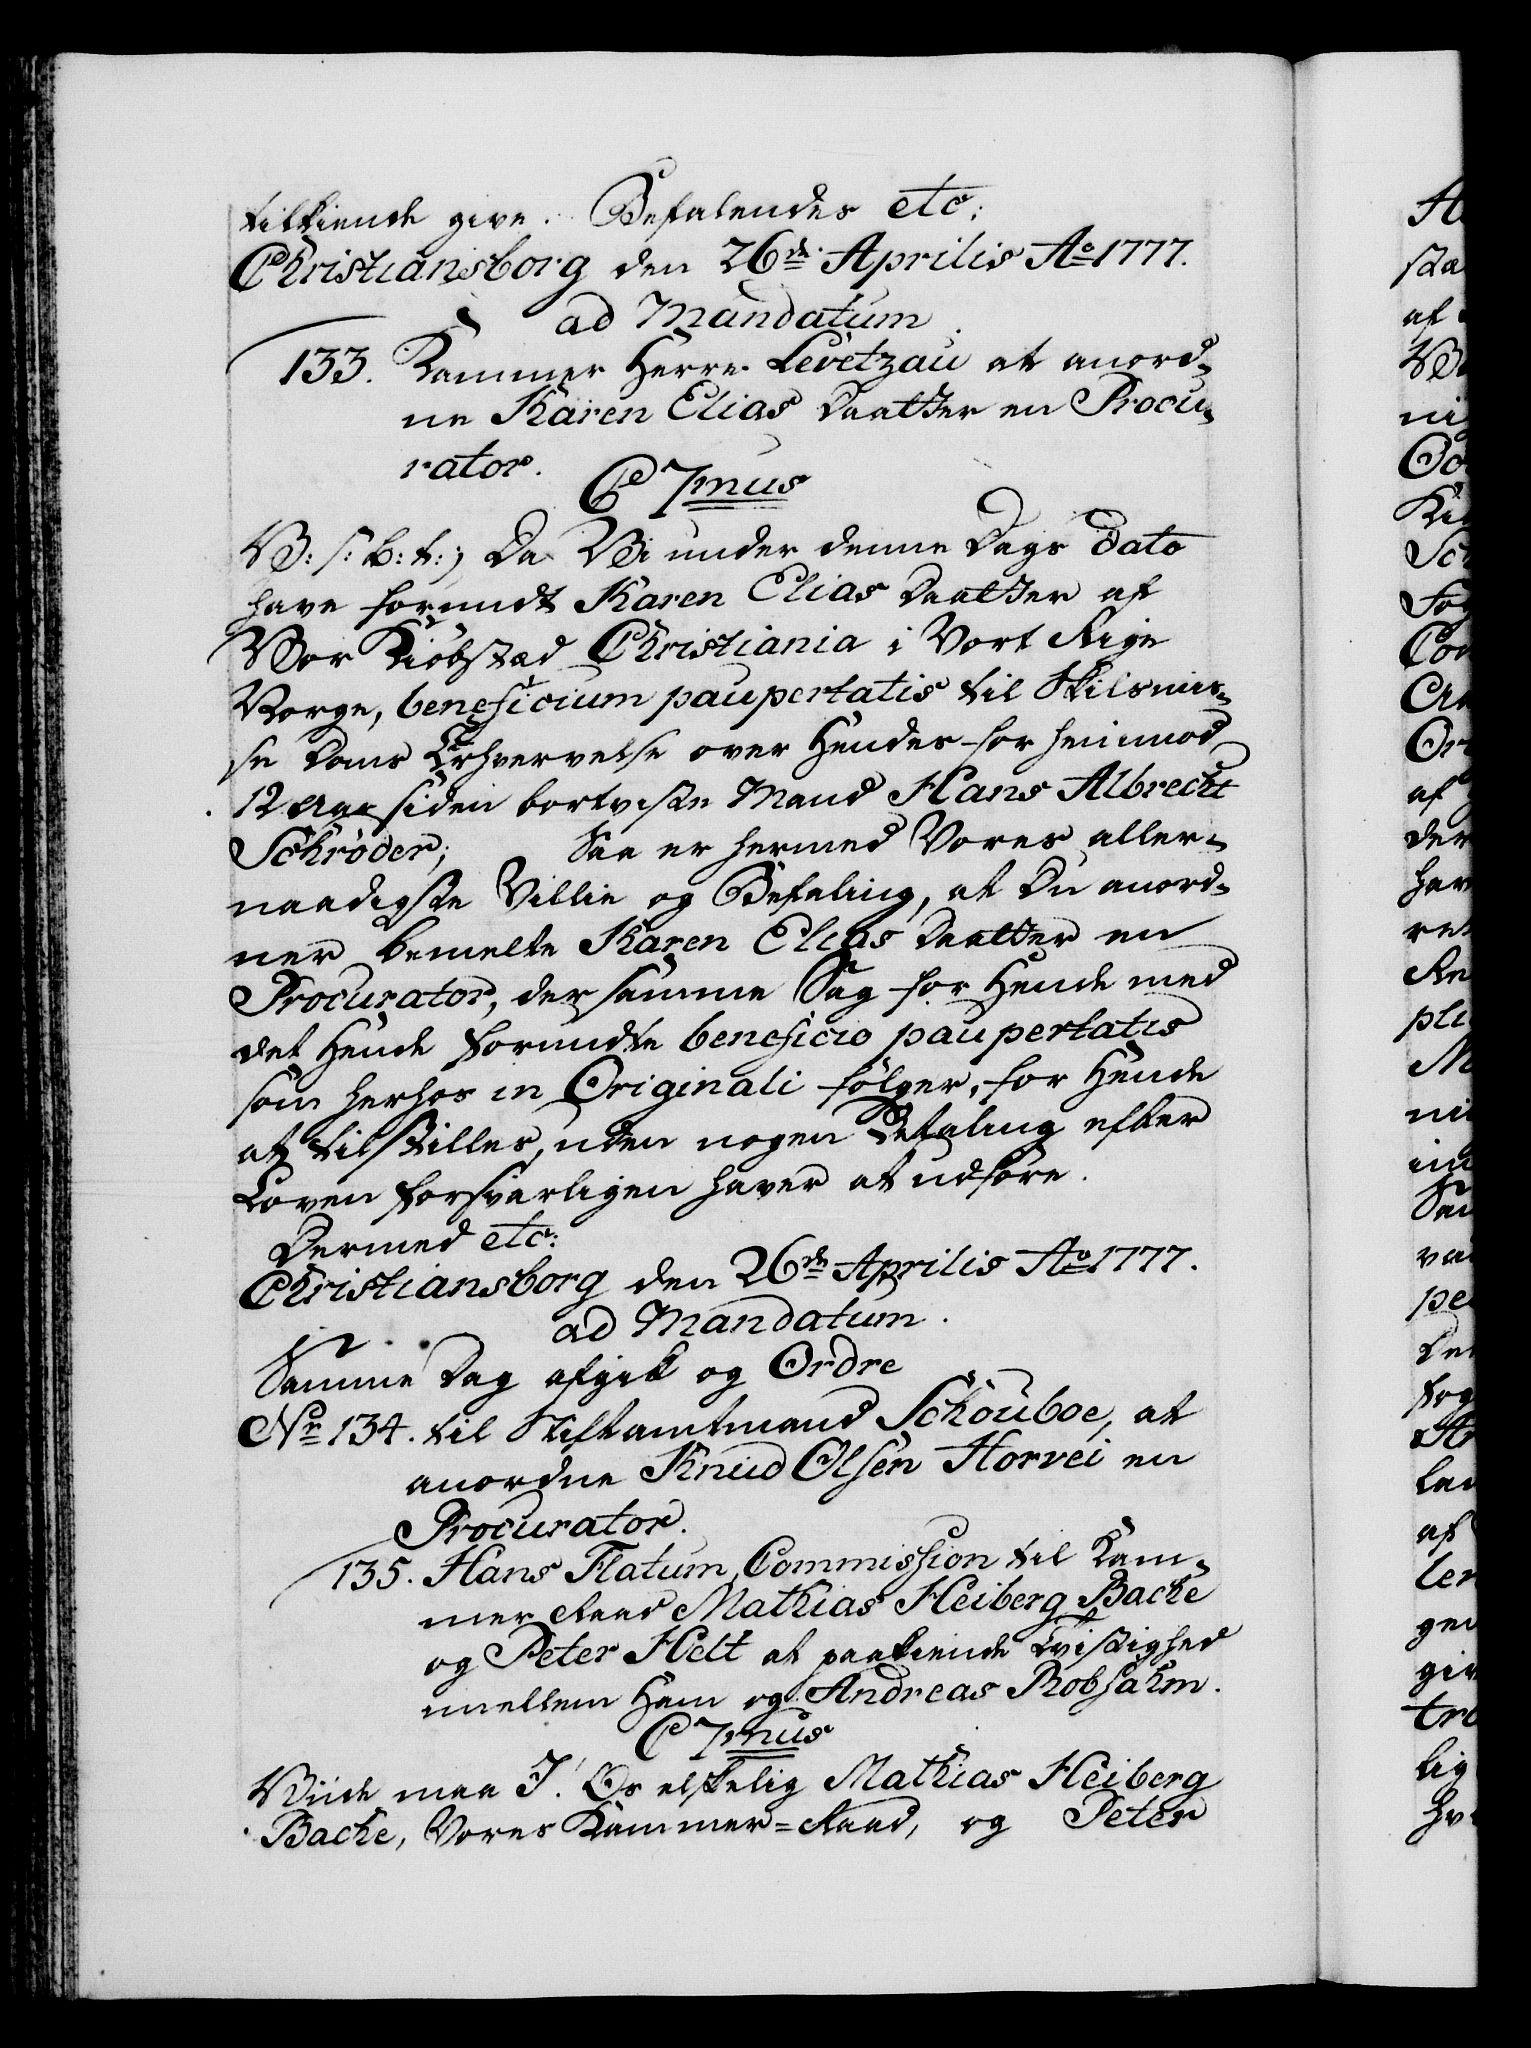 tilkiende give. Befalendes etc:
Christiansborg den 26de Aprilis Ao 1777.
ad Mandatum.
133. Kammer Herre Levetzau at anord-
ne Karen Elias Daatter en Procu-
rator.
C 7mus
V: s: b: t:, Da Vi under denne Dags Dato
have forundt Karen Elias Daatter af
Vor Kiöbstæd Christiania i Vort Rige
Norge, beneficium paupertatis til Skilsmis-
se Doms Erhvervelse over Hendes for henimod
12 Aar siden bortviste Mand Hans Albrecht
Schröder; Saa er hermed Vores aller-
naadigste Villie og Befaling, at Du anord-
ner bemelte Karen Elias Daatter en
Procurator, der samme Sag for Hende med
det Hende forundte beneficio paupertatis
som herhos in Originali fölger, for Hende
at tilstilles, uden nogen Betaling efter
Loven forsvarligen haver at udföre.
Dermed etc:
Christiansborg den 26de Aprilis Ao 1777.
ad Mandatum.
Samme Dag afgik og Ordre
No 134. til Stiftamtmand Schouboe, at
anordne Knud Olsen Horvei en
Procurator.
135. Hans Flatum, Commission til Kam-
mer Raad Mathias Heiberg Bache
og Peter Helt at paakiende Tvistighed
mellem Ham og Andreas Robsahm.
C 7mus
Viide maa I! Os elskelig Mathias Heiberg
Bache, Vores Kammer=Raad, og Peter